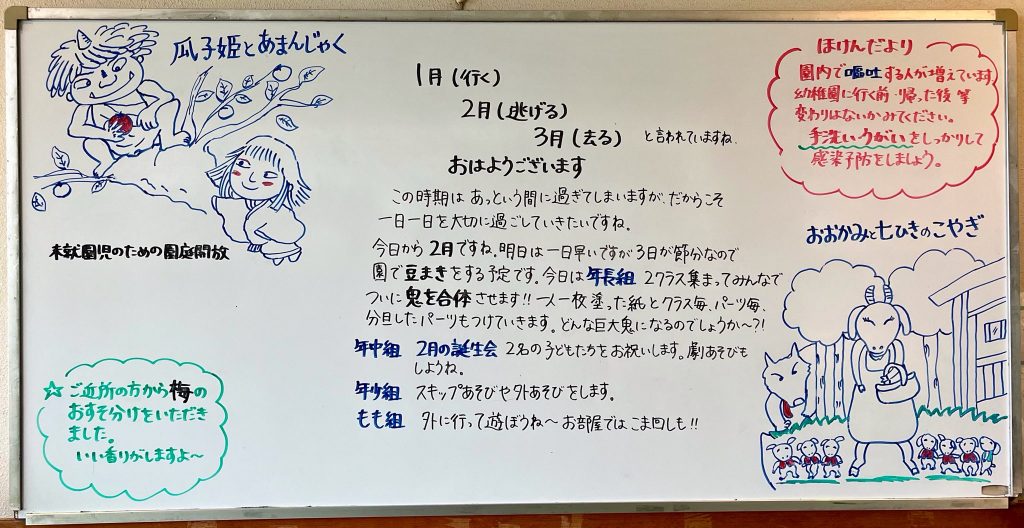 瓜子姫とあまんじゃく
未就園児のための園庭開放
☆ご近所の方から梅の
おすそ分けをいただき
ました。
いい香りがしますよ～
1月(行く)
2月(逃げる)
3月(去る) と言われていますね
おはようございます
この時期は あっという間に過ぎてしまいますが、だからこそ
一日一日を大切に過ごしていきたいですね。
今日から2月ですね。明日は一日早いですが3日が節分なので
園で豆まきをする予定です。今日は年長組 2クラス集まってみんなで
ついに鬼を合体させます!! 一人一枚塗った紙とクラス毎、パーツ毎、
分担したパーツもつけていきます。どんな巨大鬼になるのでしょうか～?!
年中組 2月の誕生会 2名の子どもたちをお祝いします。劇あそびも
しようね。
年少組 スキップあそびや外あそびをします。
もも組 外に行って遊ぼうね～お部屋ではこま回しも!!
ほけんだより
園内で嘔吐する人が増えています。
幼稚園に行く前・帰った後 等
変わりはないかみてください。
手洗いうがいをしっかりして
感染予防をしましょう。
おおかみと七ひきのこやぎ